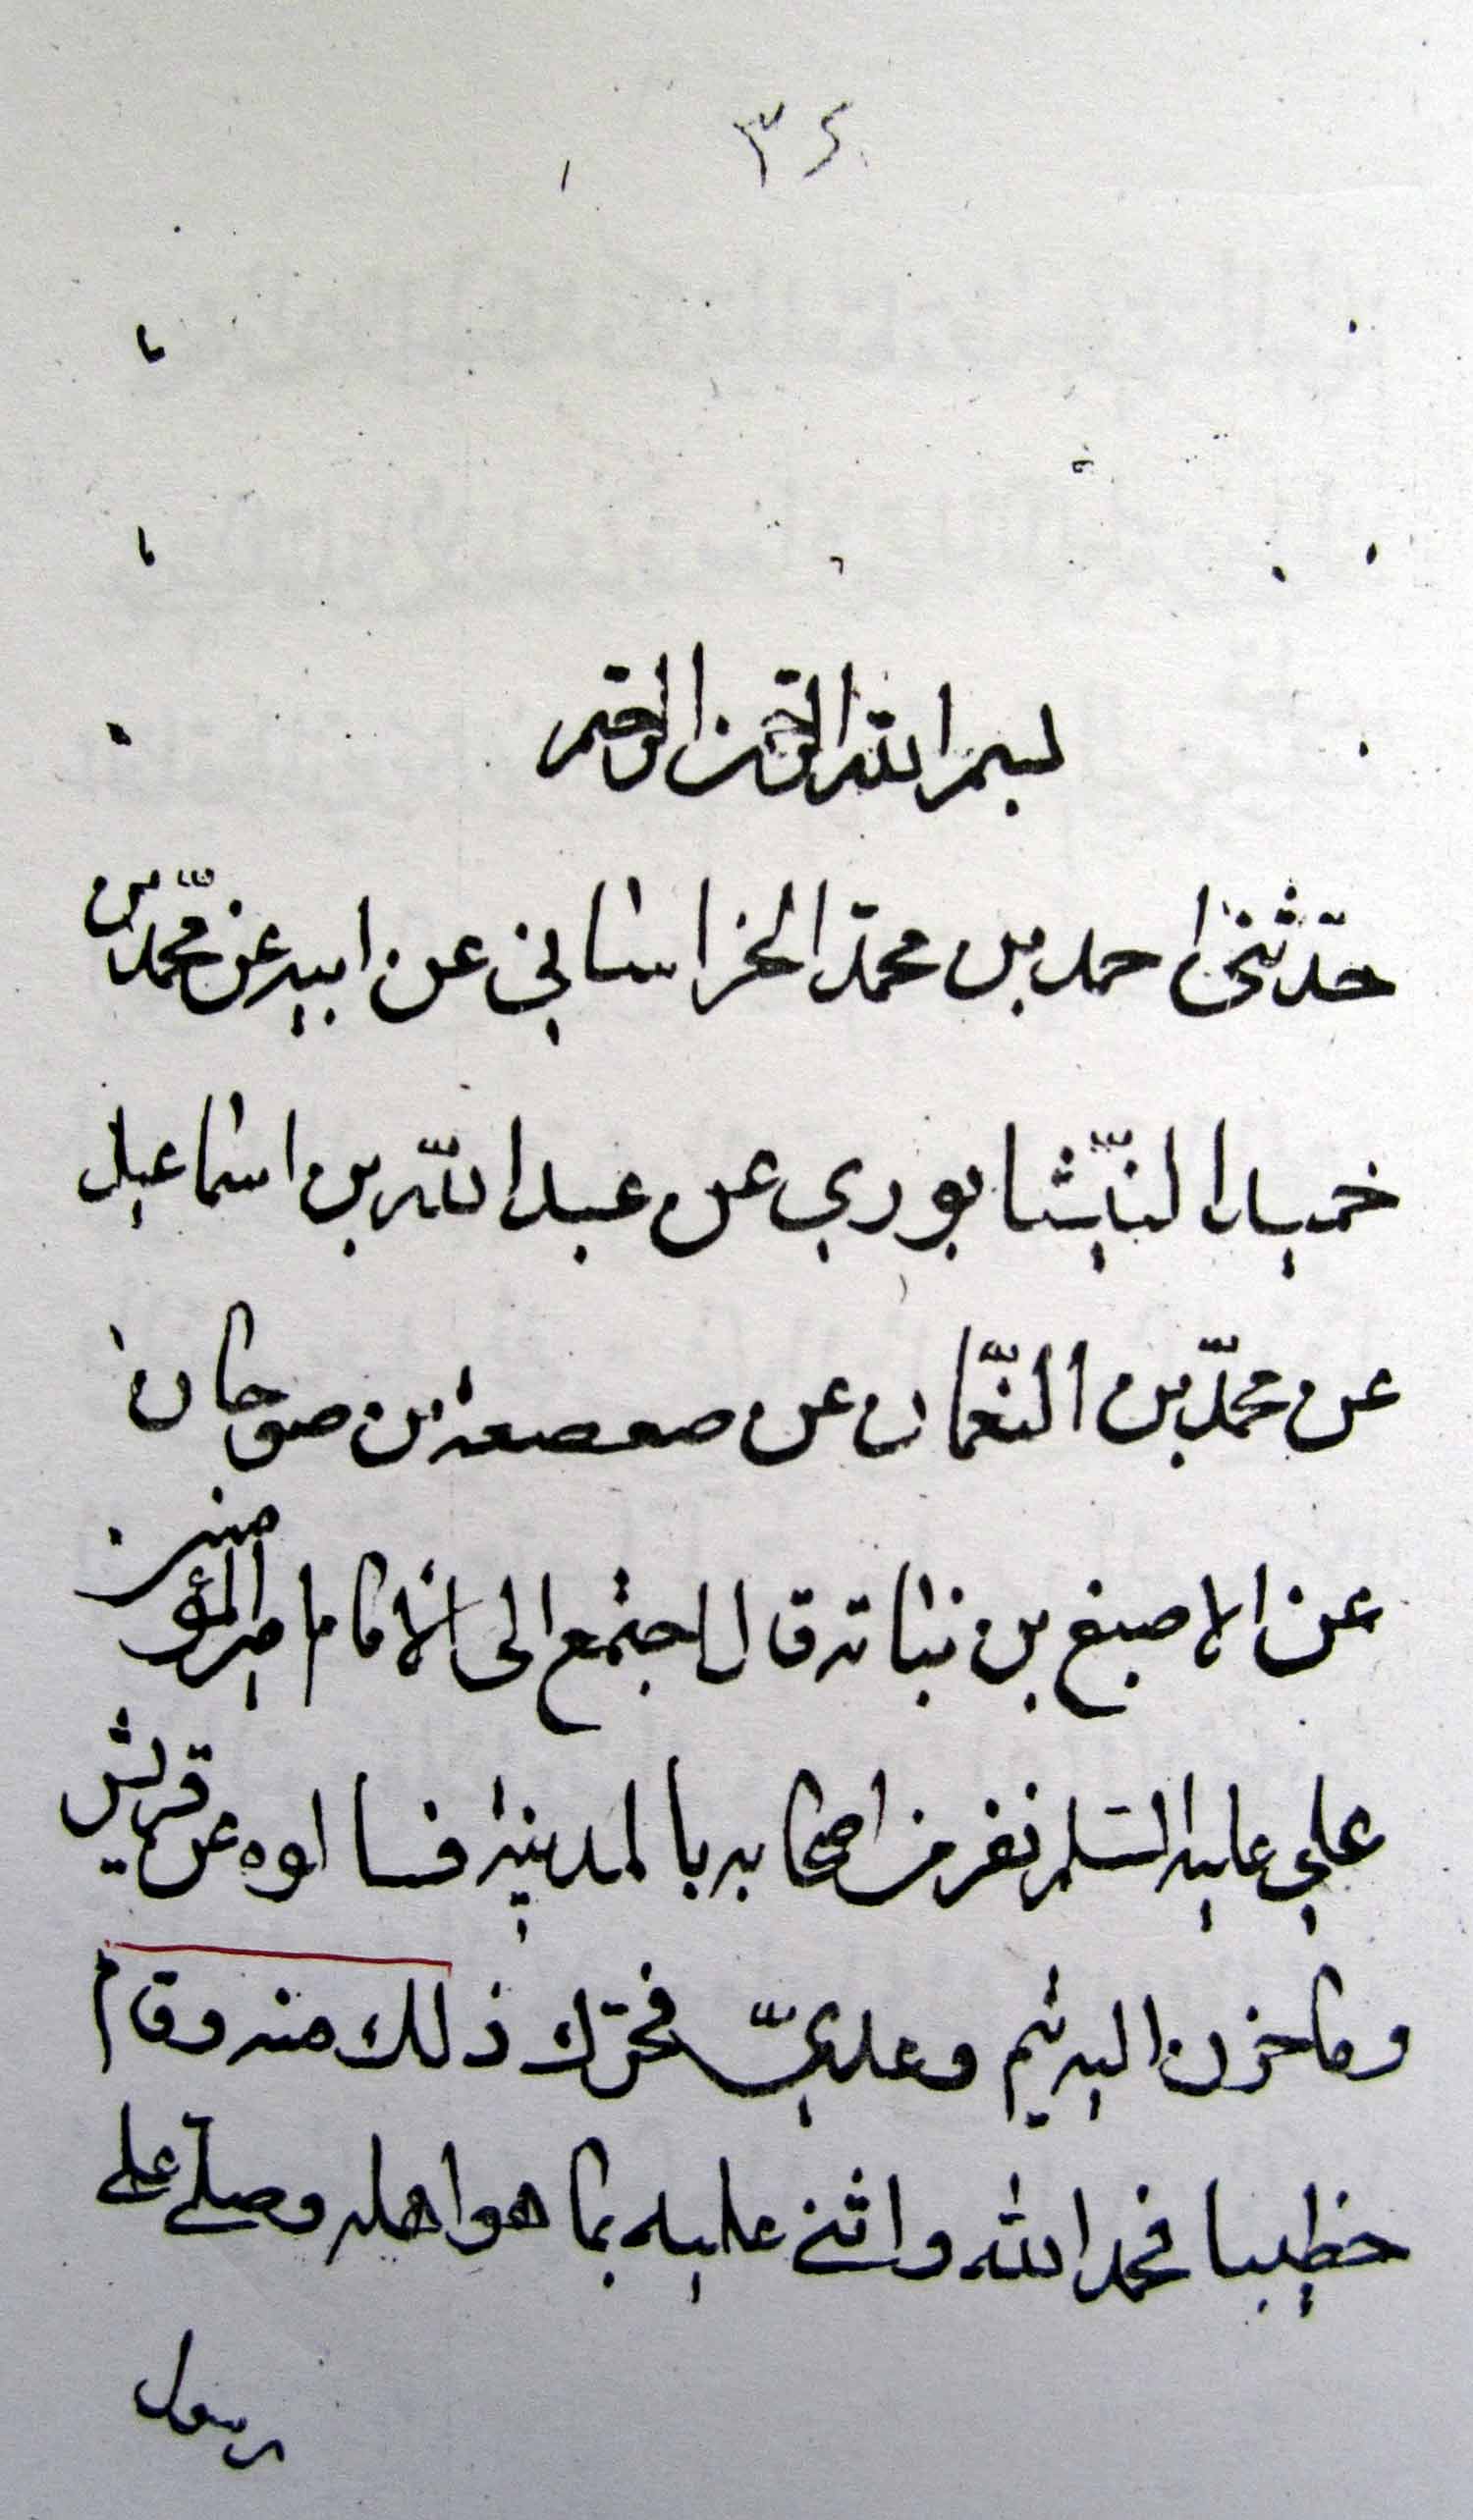 ٣٤
بسم الله الرحمن الرحيم
حدّثني احمد بن محمد الخراساني عن ابيه عن محمّد بن
خميدا النيّشابوري عن عبد الله بن اسماعيل
عن محمّد بن النّعمان عن صعصعة بن صوحان
عن الاصبغ بن نباته قال اجتمع الى الامام امير المؤمنين
علي عليه السّلم نفر من اصحابه بالمدينة فسالوه عن قريش
وما حزن اليه تيم وعديّ فحرّك ذلك منه وقام
خطيبا فحمد الله واثنى عليه بما هو اهله وصلّى على
رسول